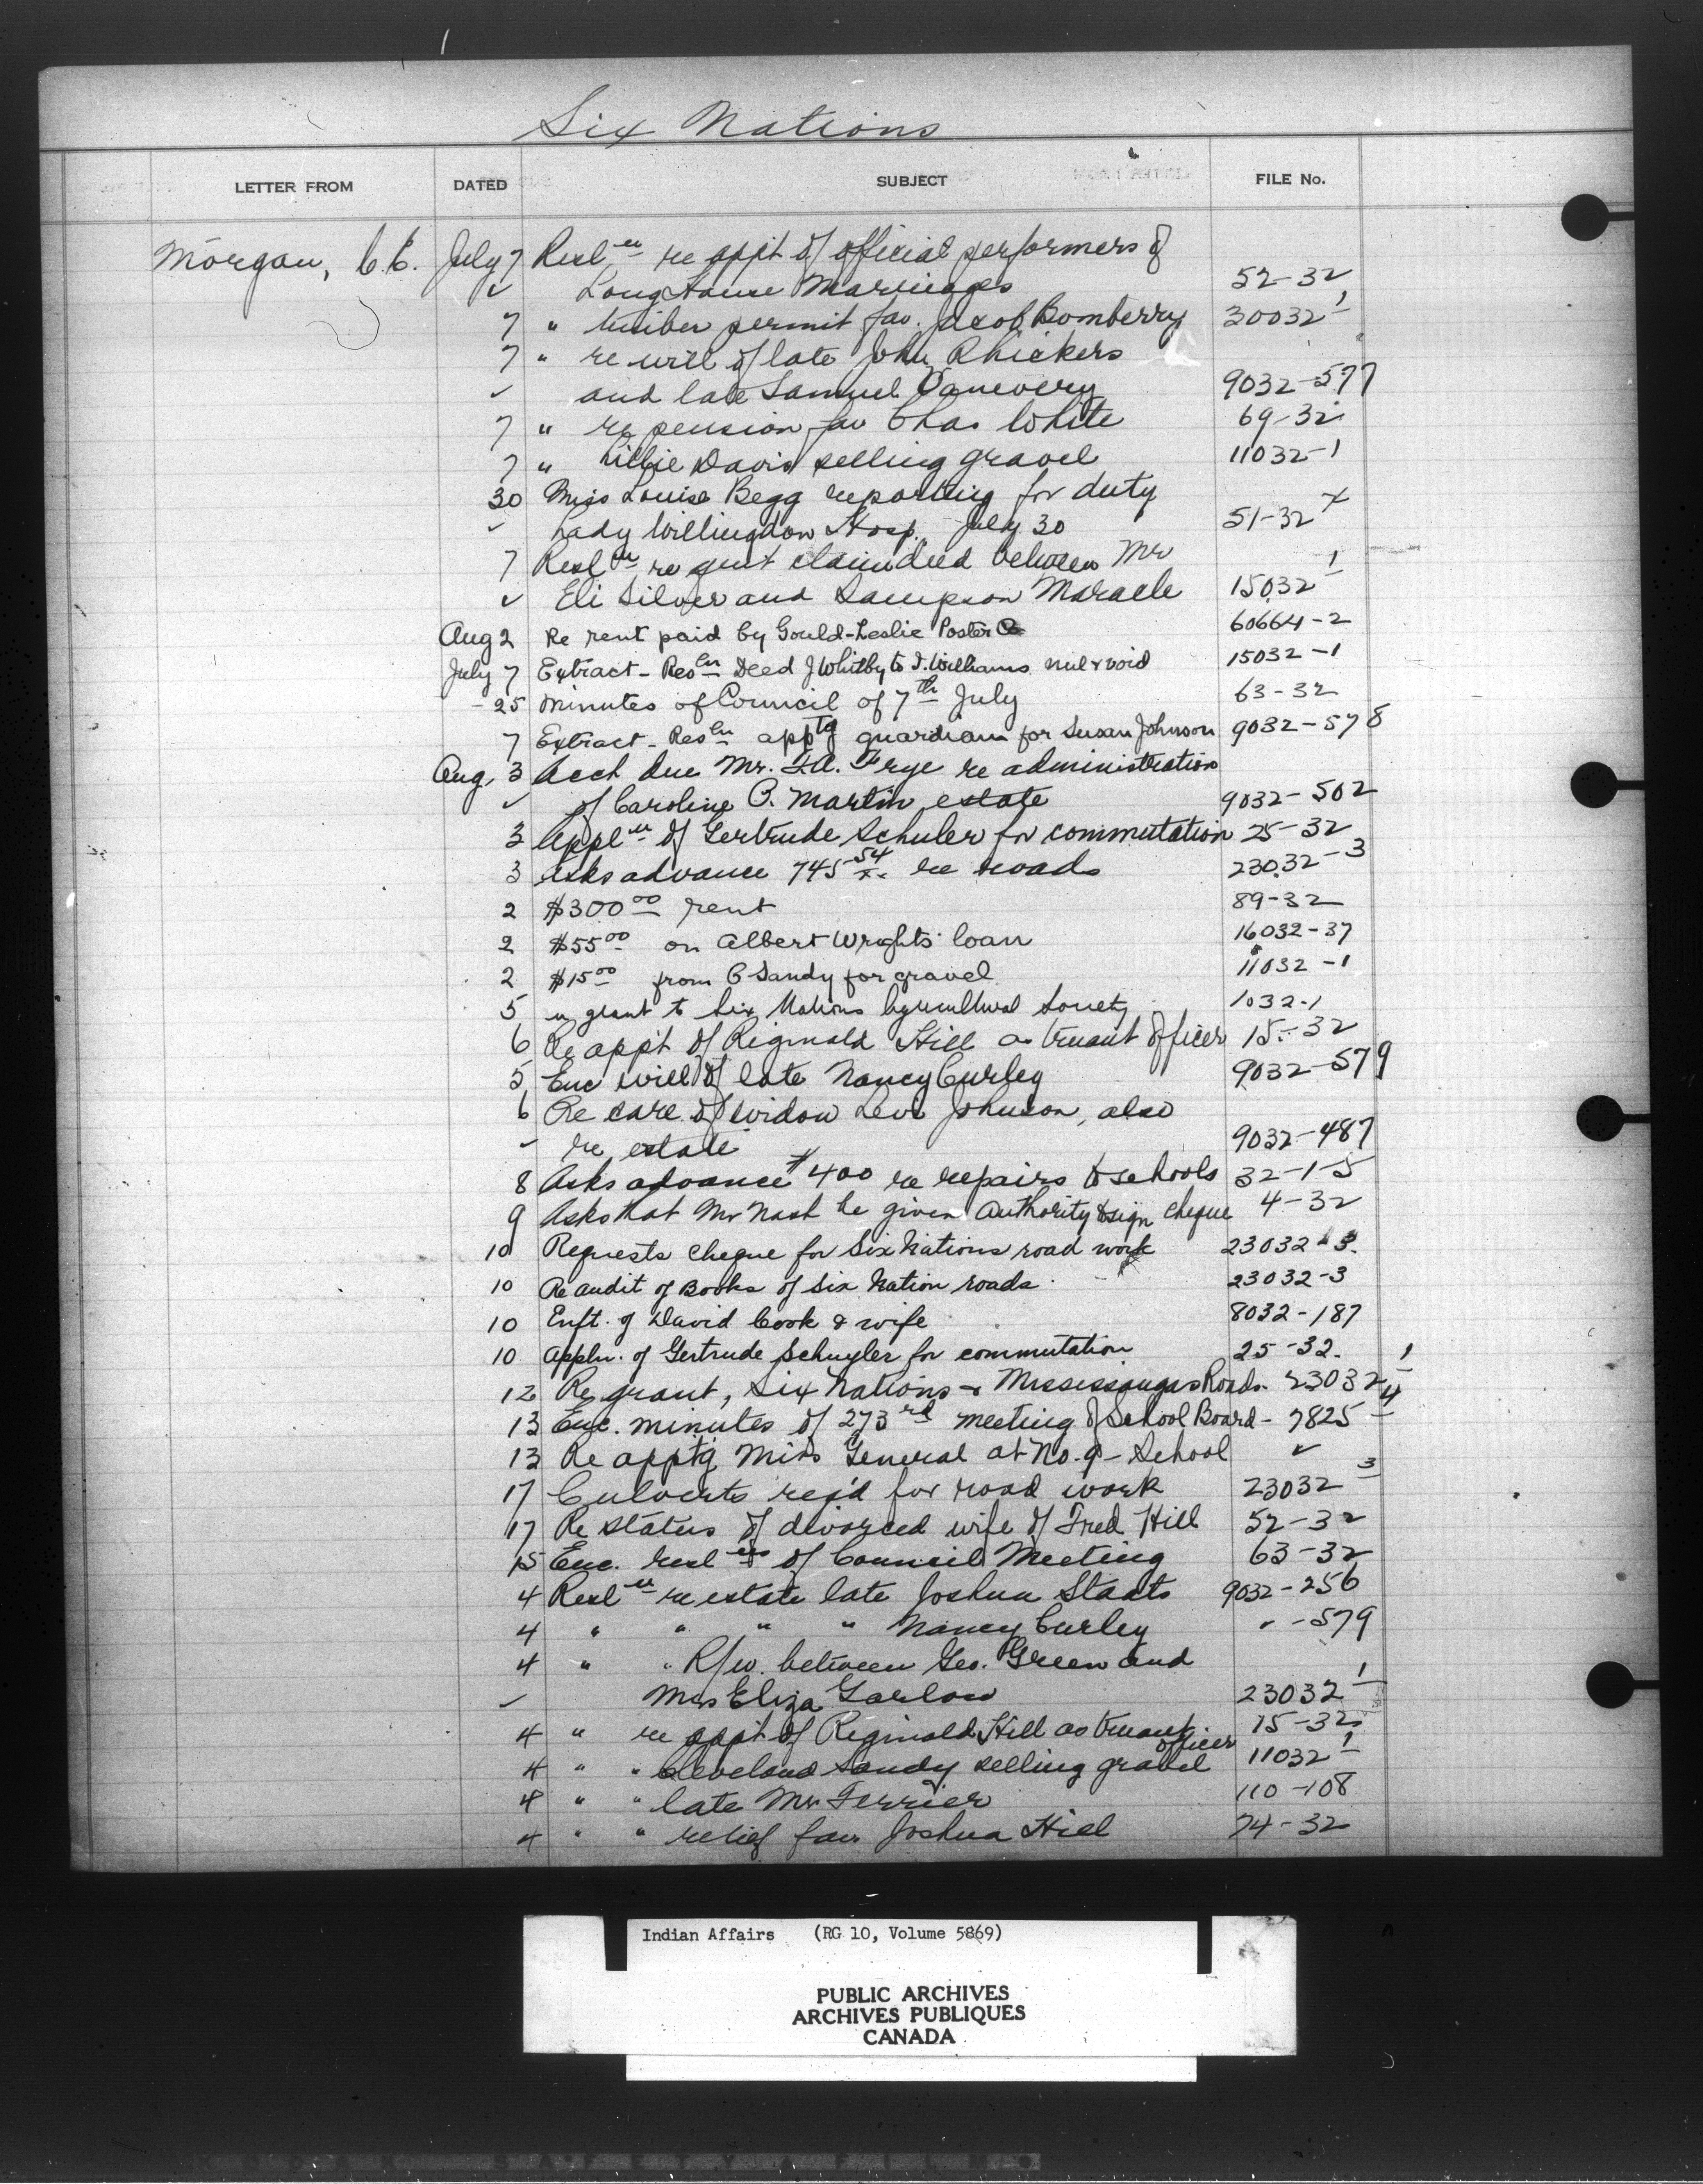 Six Nations
LETTER FROM DATED SUBJECT FILE No.
Morgan, C.C. July 7 Resl<sup>n</sup> re appt of official performers of
✓ Long House Marriages 52-32
7 " timber permit fav. Jacob Bomberry 30032-1
7 " re will of late John Rhickers
✓ and late Samuel Vanevery 9032-577
7 " re pension fav Chas White 69-32
7 " Davis selling gravel 11032-1
30 Miss Louise Begg reporting for duty
✓ Lady Willingdon Hosp. July 30 51-32 x
7 Resl<sup>n</sup> re quit claim deed between Mr
✓ Eli Silver and Sampson Maracle 15032-1
Aug 2 Re rent paid by Gould-Leslie Poster Co 60664-2
July 7 Extract - Res<sup>ln</sup> Deed J Whitby to J. Williams nul & void 15032-1
25 Minutes of Council of 7<sup>th</sup> July 63-32
7 Extract - Res<sup>ln</sup> app<sup>tg</sup> guardian for Susan Johnson 9032-578
Aug. 3 Acct due Mr. F.A. Frye re administration
✓ of Caroline P. Martin estate 9032-502
3 Appl<sup>n</sup> of Gertrude Schuler for commutation 25-32
3 Asks advance 745<sup>54</sup> re roads 23032-3
2 $300<sup>00</sup> rent 89-32
2 $55<sup>00</sup> on Albert Wrights loan 16032-37
2 $15<sup>00</sup> from C Sandy for gravel 11032-1
5 re grant to Six Nations Agricultural Society 1032-1
6 Re appt of Reginald Hill as truant officer 15-32
5 Enc will of late Nancy Curley 9032-579
6 Re care of widow Levi Johnson, also
✓ re estate 9032-487
8 Asks advance $400 re repairs to schools 32-1-5
9 Asks that Mr Nash be given authority to sign cheque 4-32
10 Requests cheque for Six Nations road work 23032-3.
10 Re audit of Books of Six Nation roads. 23032-3
10 Enft. of David Cook & wife 8032-187
10 Appln. of Gertrude Schuyler for commutation 25-32.
12 Re grant, Six Nations & Mississaugas Roads. 23032-1
13 Enc. minutes of 273<sup>rd</sup> meeting of School Board - 7825-4
13 Re appt'g Miss General at No. 9 - School ✓
17 Culverts req'd for road work 23032-3
17 Re status of divorced wife of Fred Hill 52-32
15 Enc. resl<sup>ns</sup> of Council Meeting 63-32
4 Resl<sup>n</sup> re estate late Joshua Staats 9032-256
4 " " " " Nancy Curley " -579
4 " " R/w. between Geo. Green and
✓ Mrs Eliza Garlow 23032-1
4 " re appt of Reginald Hill as truant officer 15-32
4 " " Cleveland Sandy selling gravel 11032-1
4 " " late Mr Ferrier 110-108
4 " " relief fav. Joshua Hill 74-32
Indian Affairs (RG 10, Volume 5869)
PUBLIC ARCHIVES
ARCHIVES PUBLIQUES
CANADA